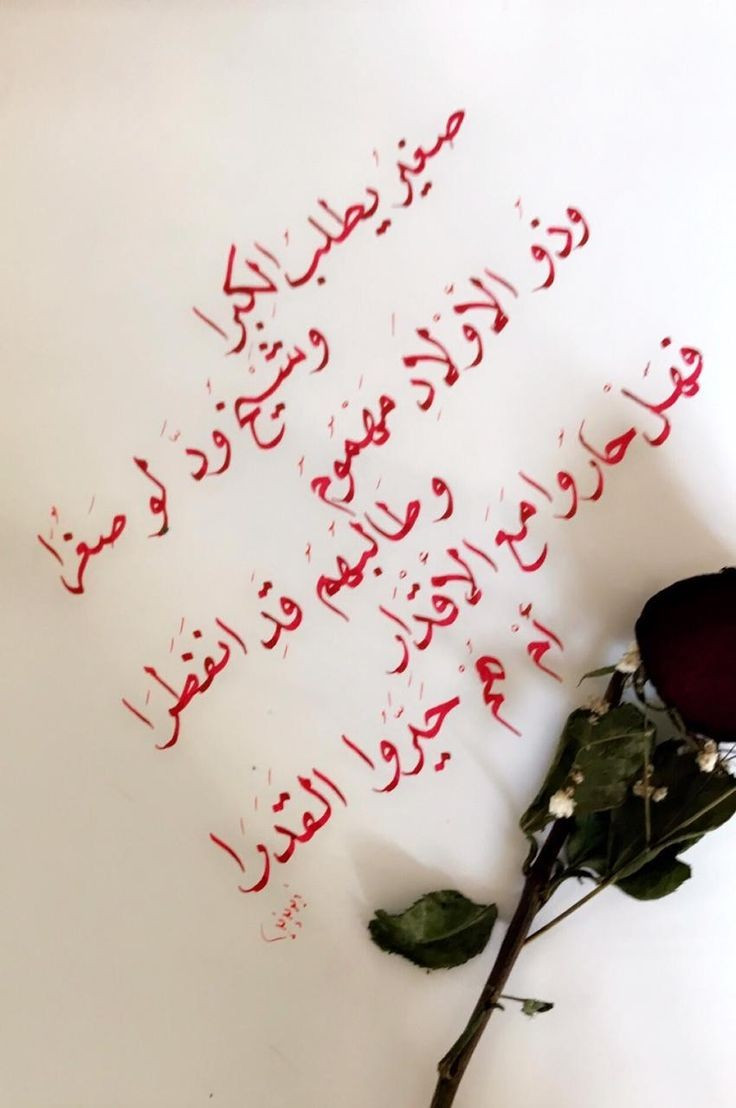 صغيرٌ يطلبَ الكِبرا
وشَيْخٌ وُدَّ لو صَغُرَا
وذُو الأوْلَادِ مَهْمُومٌ
وطَالبُهُم قَدِ انفَطَرَا
فهَل حَارُوا مَعَ الأقْدَارِ
أمْ هُمْ حَيَّرُوا القَدَرَا